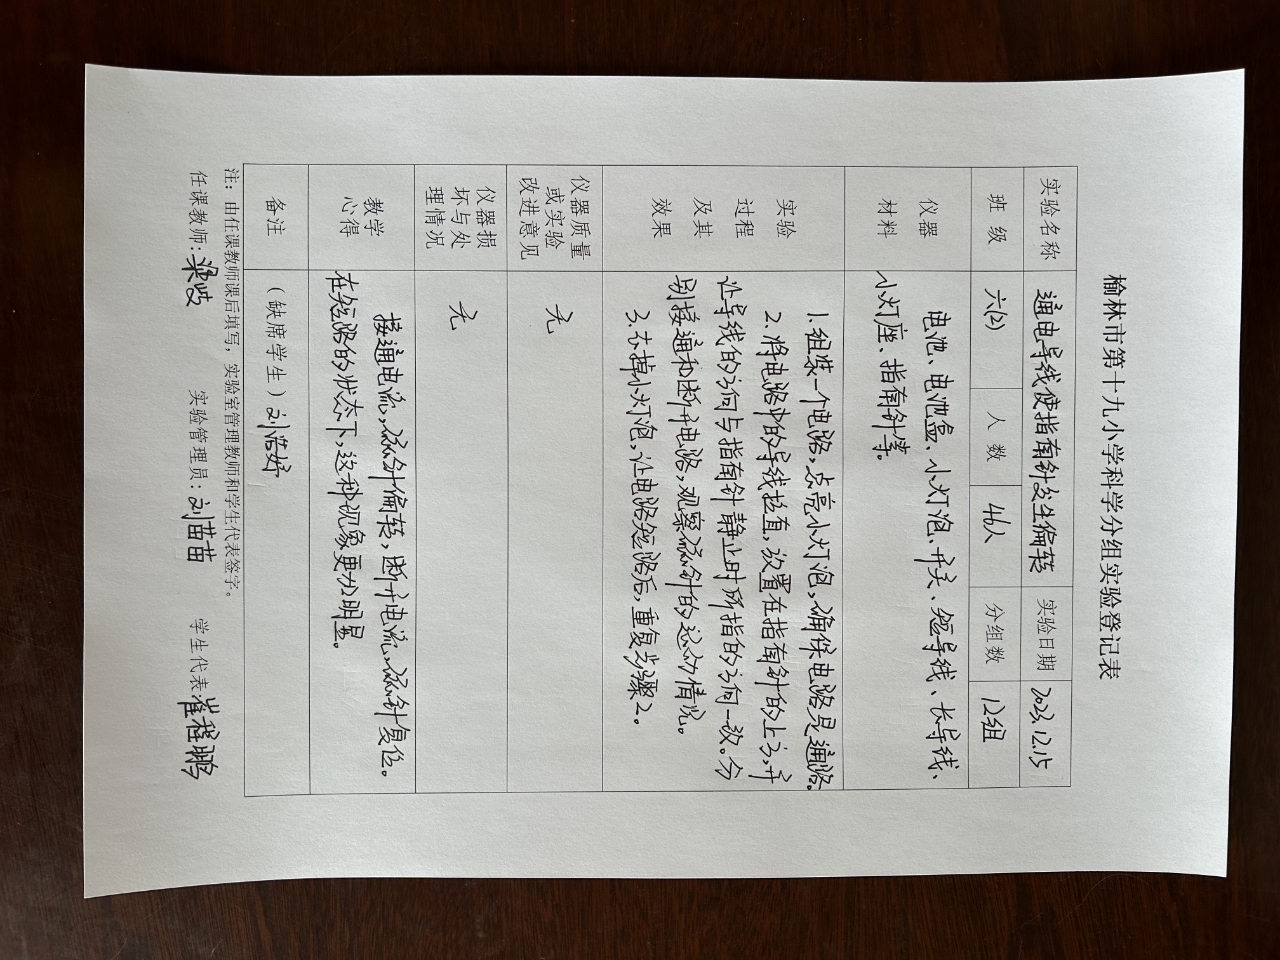 榆林市第十九小学科学分组实验登记表
实验名称 通电导线使指南针发生偏转 实验日期 2023.12.15
班级 六(2) 人数 46人 分组数 12组
仪器
材料
电池、电池盒、小灯泡、开关、短导线、长导线、
小灯座、指南针等。
实验
过程
及其
效果
1.组装一个电路,点亮小灯泡,确保电路是通路。
2.将电路中的导线拉直,放置在指南针的上方,并
让导线的方向与指南针静止时所指的方向一致。分
别接通和断开电路,观察磁针的运动情况。
3.去掉小灯泡,让电路短路后,重复步骤2。
仪器质量
或实验
改进意见
无
仪器损
坏与处
理情况
无
教学
心得
接通电流,磁针偏转,断开电流,磁针复位。
在短路的状态下,这种现象更加明显。
备注 (缺席学生)刘浩妤
注:由任课教师课后填写,实验室管理教师和学生代表签字。
任课教师:梁岐 实验管理员:刘苗苗 学生代表 崔程鹏